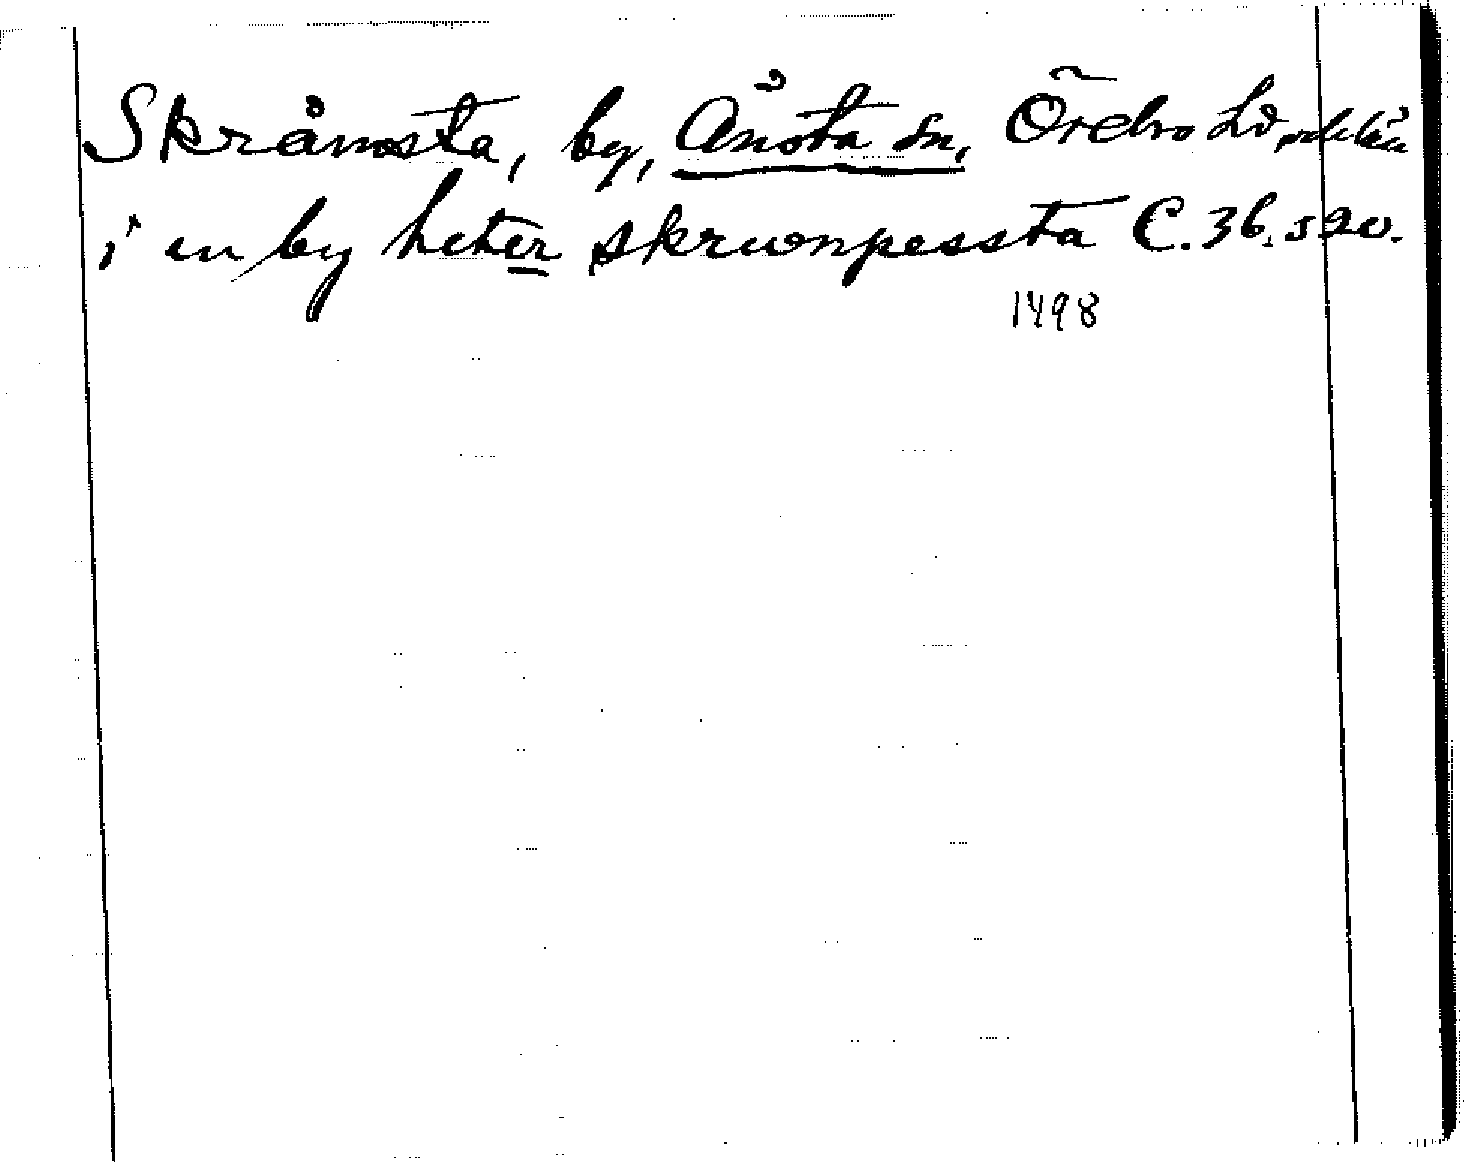 Skråmsta, by, Ånsta sn, Örebro hd, och län
i en by heter skrwonpessta C.36. s 20.
1498